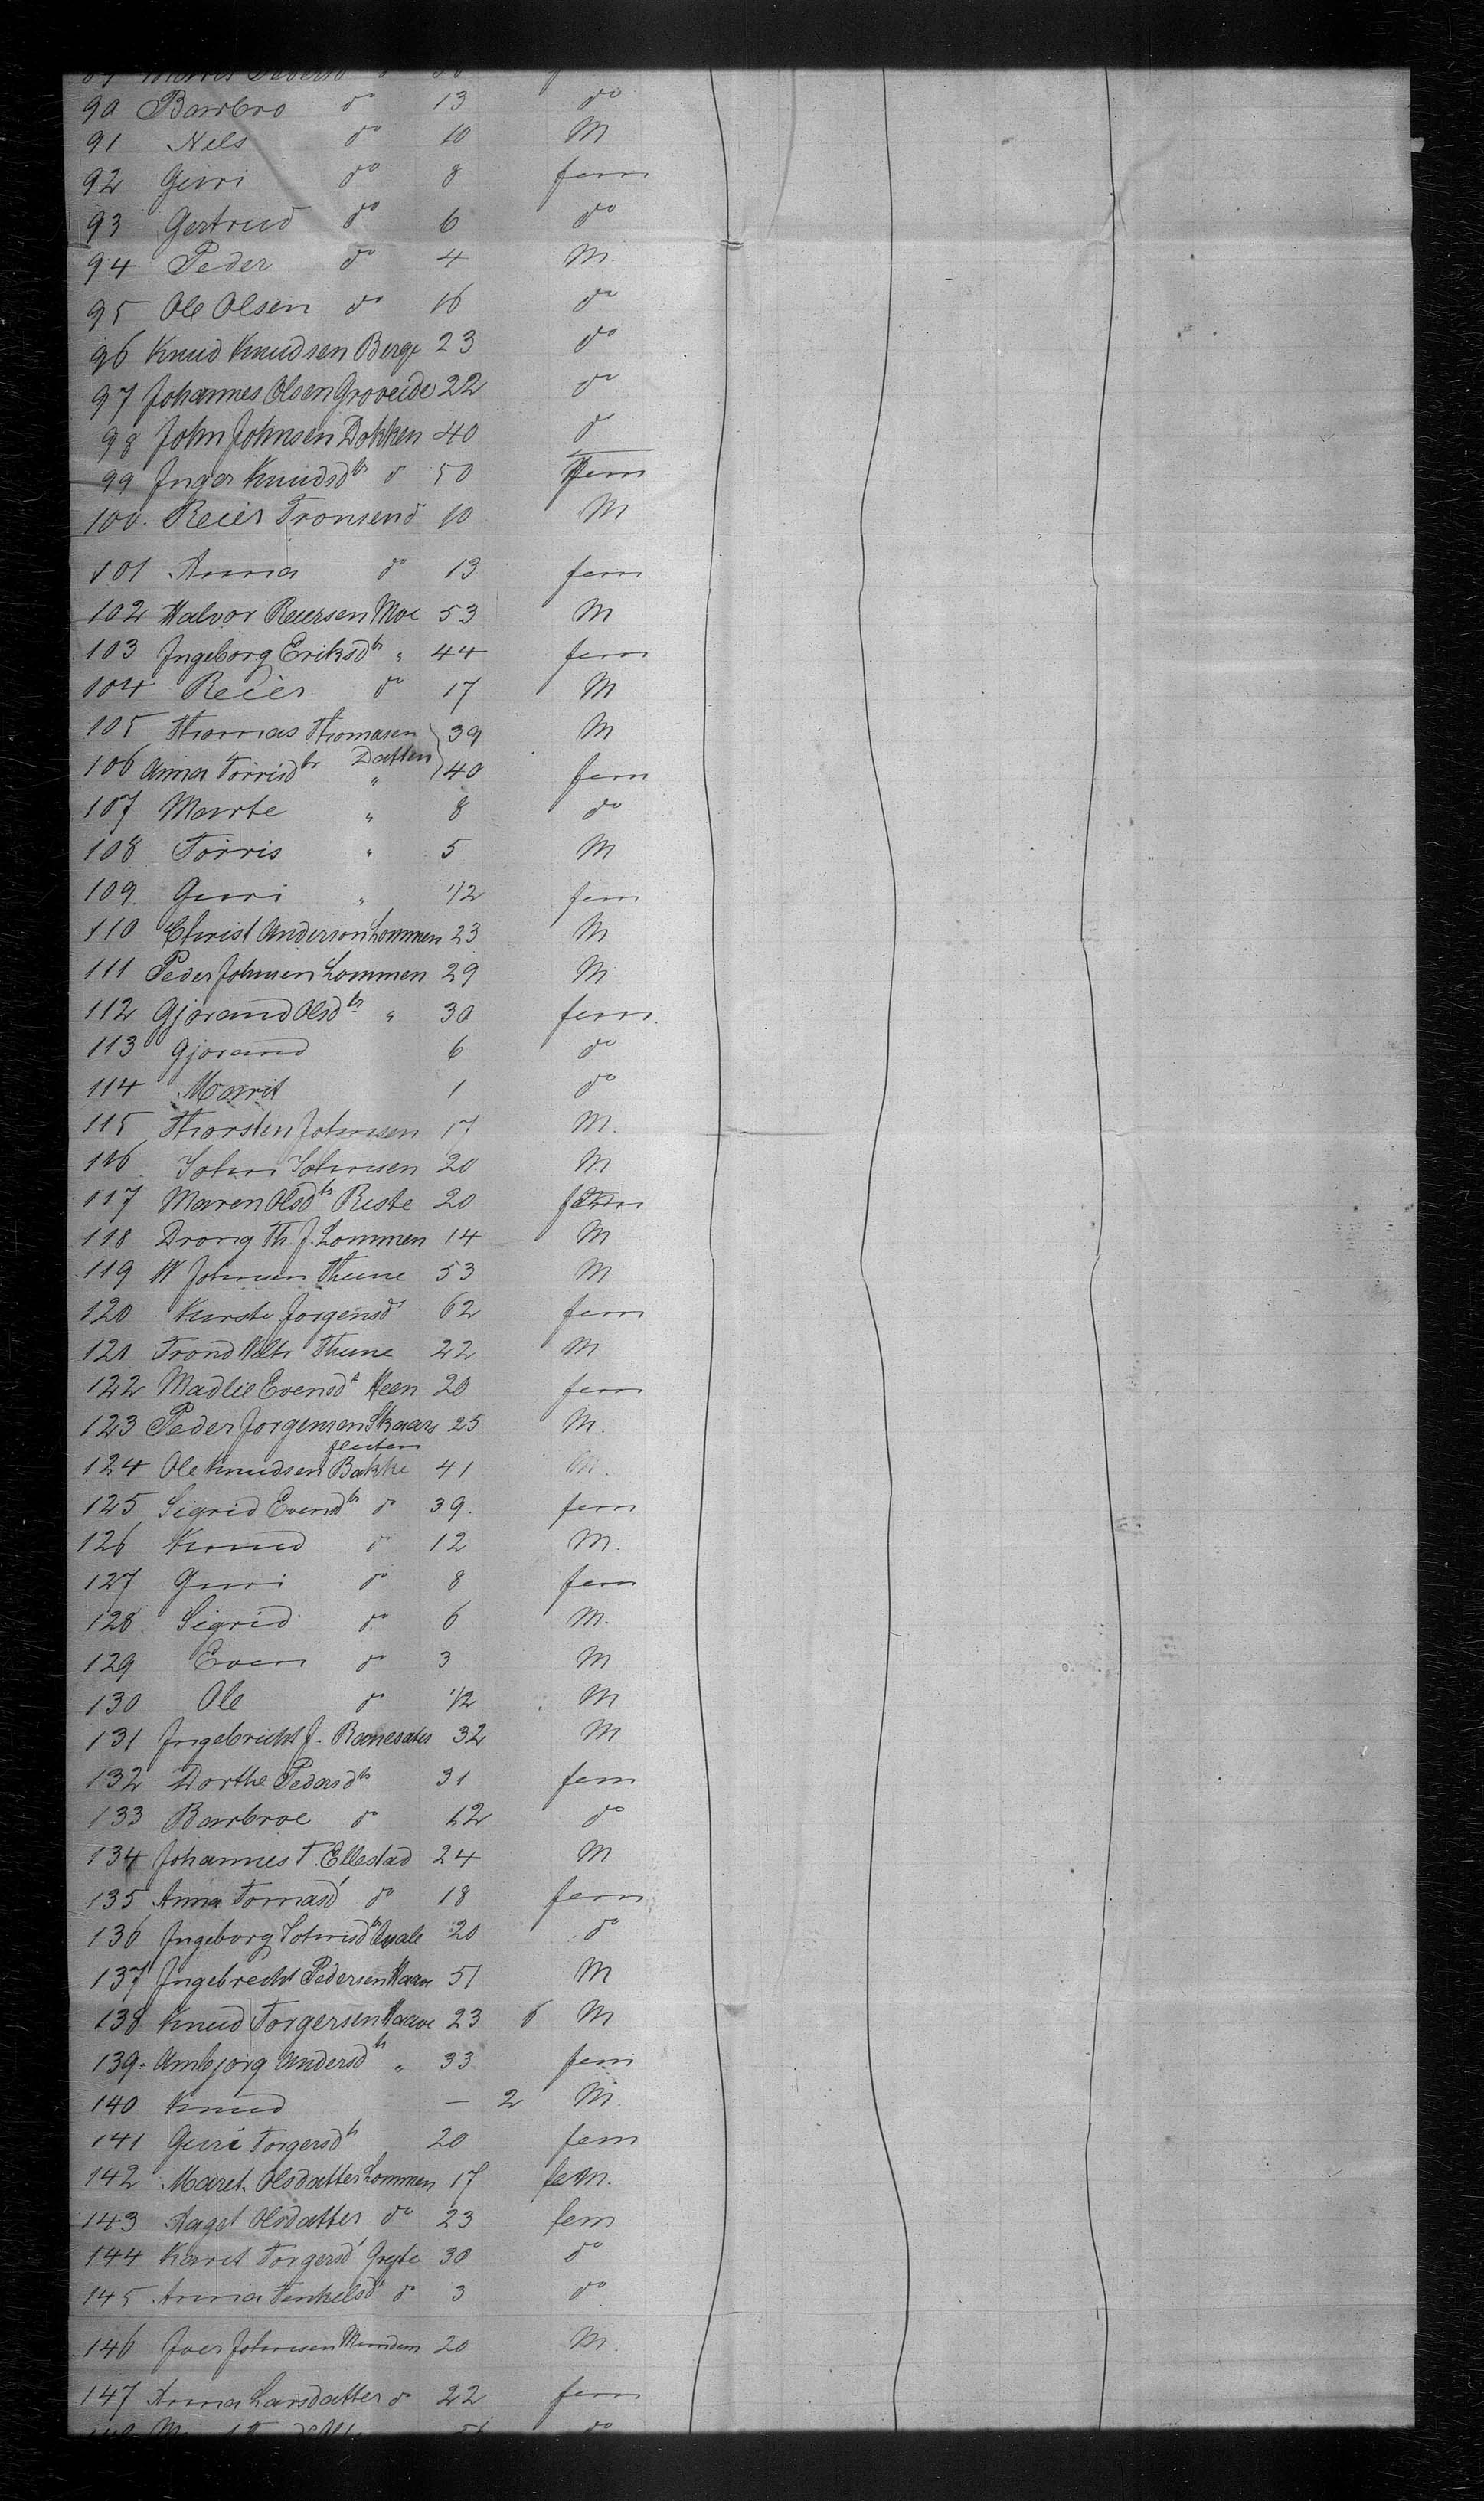 90 Barbro do 13 do
91 Nils do 10 M
92 Guri do 8 fem
93 Gertrud do 6 do
94 Peder do 4 M.
95 Ole Olsen do 16 do
96 Knud Knudsen Berge 23 do
97 Johannes Olsen Groveide 22 do
98 John Johnsen Dokken 40 do
99 Inger Knudsdtr do 50 fem
100. Reier Tronsend 10 M
101 Anna do 13 fem
102 Halvor Reiersen Moe 53 M
103 Ingeborg Eriksdtr " 44 fem
104 Reier do 17 M
105 Thomas Thomasen 39 M
Datten
106 Anna Torrisdtr " 40 fem
107 Marte " 8 do
108 Torris " 5 M
109. Guri " 1/2 fem
110 Christ Anderson Lommen 23 M
111 Peder Johnsen Lommen 29 M
112 Gjorand Olsdtr " 30 fem.
113 Gjorand 6 do
114 Marit 1 do
115 Thorsten Johnsen 17 M.
116 John Johnsen 20 M
117 Maren Olsdtr Reste 20 fem
118 Drong Th. J. Lommen 14 M
119 W Johnsen Thune 53 M
120 Kirste Jorgensdr 62 fem
121 Trond Thune 22 M
122 Madlie Evensdtr Heen 20 fem
123 Peder Jorgensen Skaars 25 M.
fleuten
124 Ole Knudsen Bakke 41 M.
125 Sigrid Evensdtr do 39. fem
126 Knud do 12 M.
127 Guri do 8 fem
128. Sigrid do 6 M.
129 Even do 3 M
130 Ole do 1/2 M
131 Ingebricht J. 32 M
132 Dorthe Pedersdtr 31 fem
133 Barbroe do 12 do
134 Johannes T. Ellestad 24 M
135 Anna Tomasd do 18 fem
136 Ingeborg Johnsdtr Quale 20 do
137 Ingebrecht Pedersen Haave 51 M
138 Knud Torgersen Haave 23 M
139- Ambjorg Andersdtr " 33 fem
140 Knud — 2 M.
141 Guri Torgersdtr 20 fem
142 Maret Olsdatter Lommen 17 fem.
143 Aagot Olsdatter do 23 fem
144 Karet Torgersd 30 do
145 Anna Tenkelsd do 3 do
146 Iver Johnsen 20 M.
147 Anna Larsdatter do 22 fem